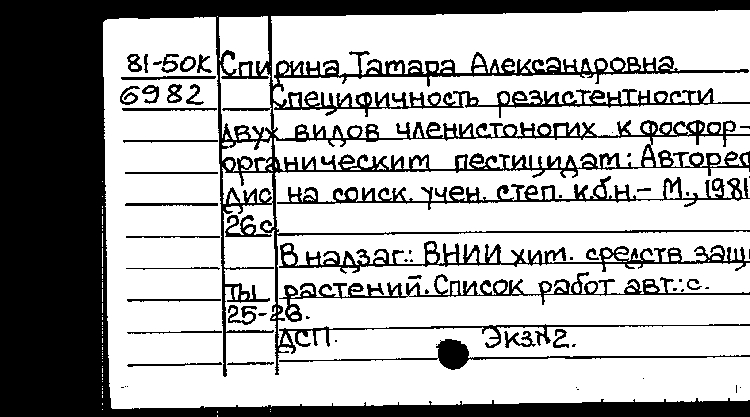 81-50К Спирина, Тамара Александровна.
6982 Специфичность резистентности
двух видов членистоногих к фосфор-
органическим пестицидам: Автореф
дис на соиск. учен. степ. к.б.н.- М., 1981
26 с
В надзаг.: ВНИИ хим. средств защи
ты растений. Список работ авт.: с.
25-26.
ДСП. Экз№2.